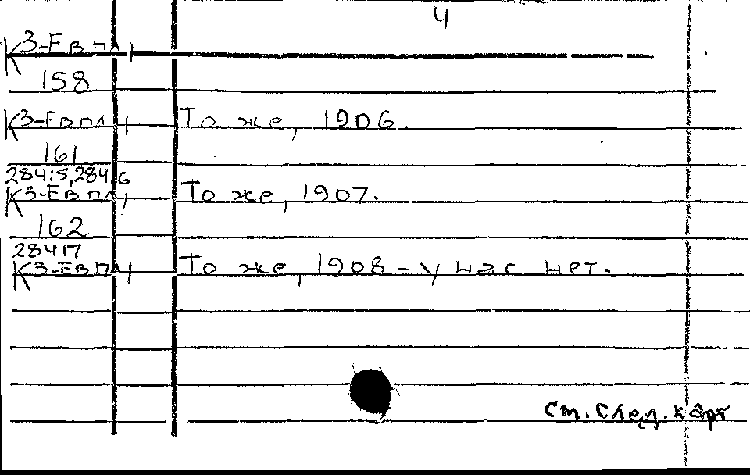 4
КЗ-Евпл
158
КЗ-Евпл То же, 1906.
161
28415, 28416
КЗ-Евпл То же, 1907.
162
28417
КЗ-Евпл То же, 1908 - у нас нет.
См. след. карт